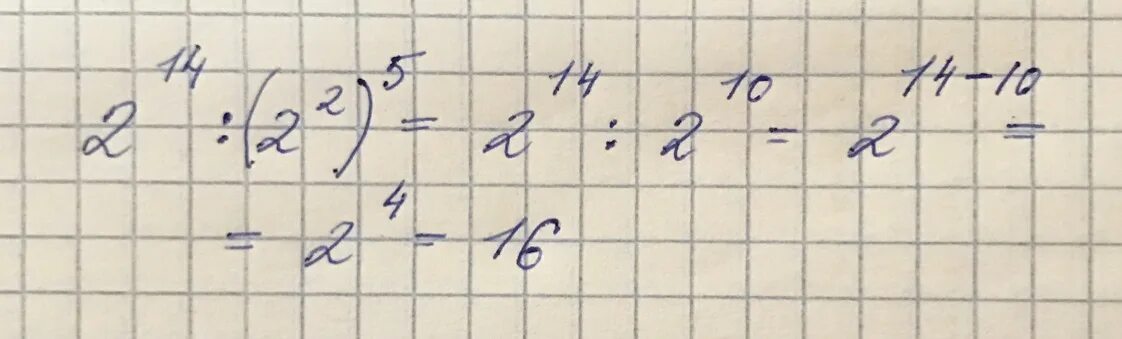 2¹⁴ : (2²)⁵ = 2¹⁴ : 2¹⁰ = 2¹⁴⁻¹⁰ =
= 2⁴ = 16